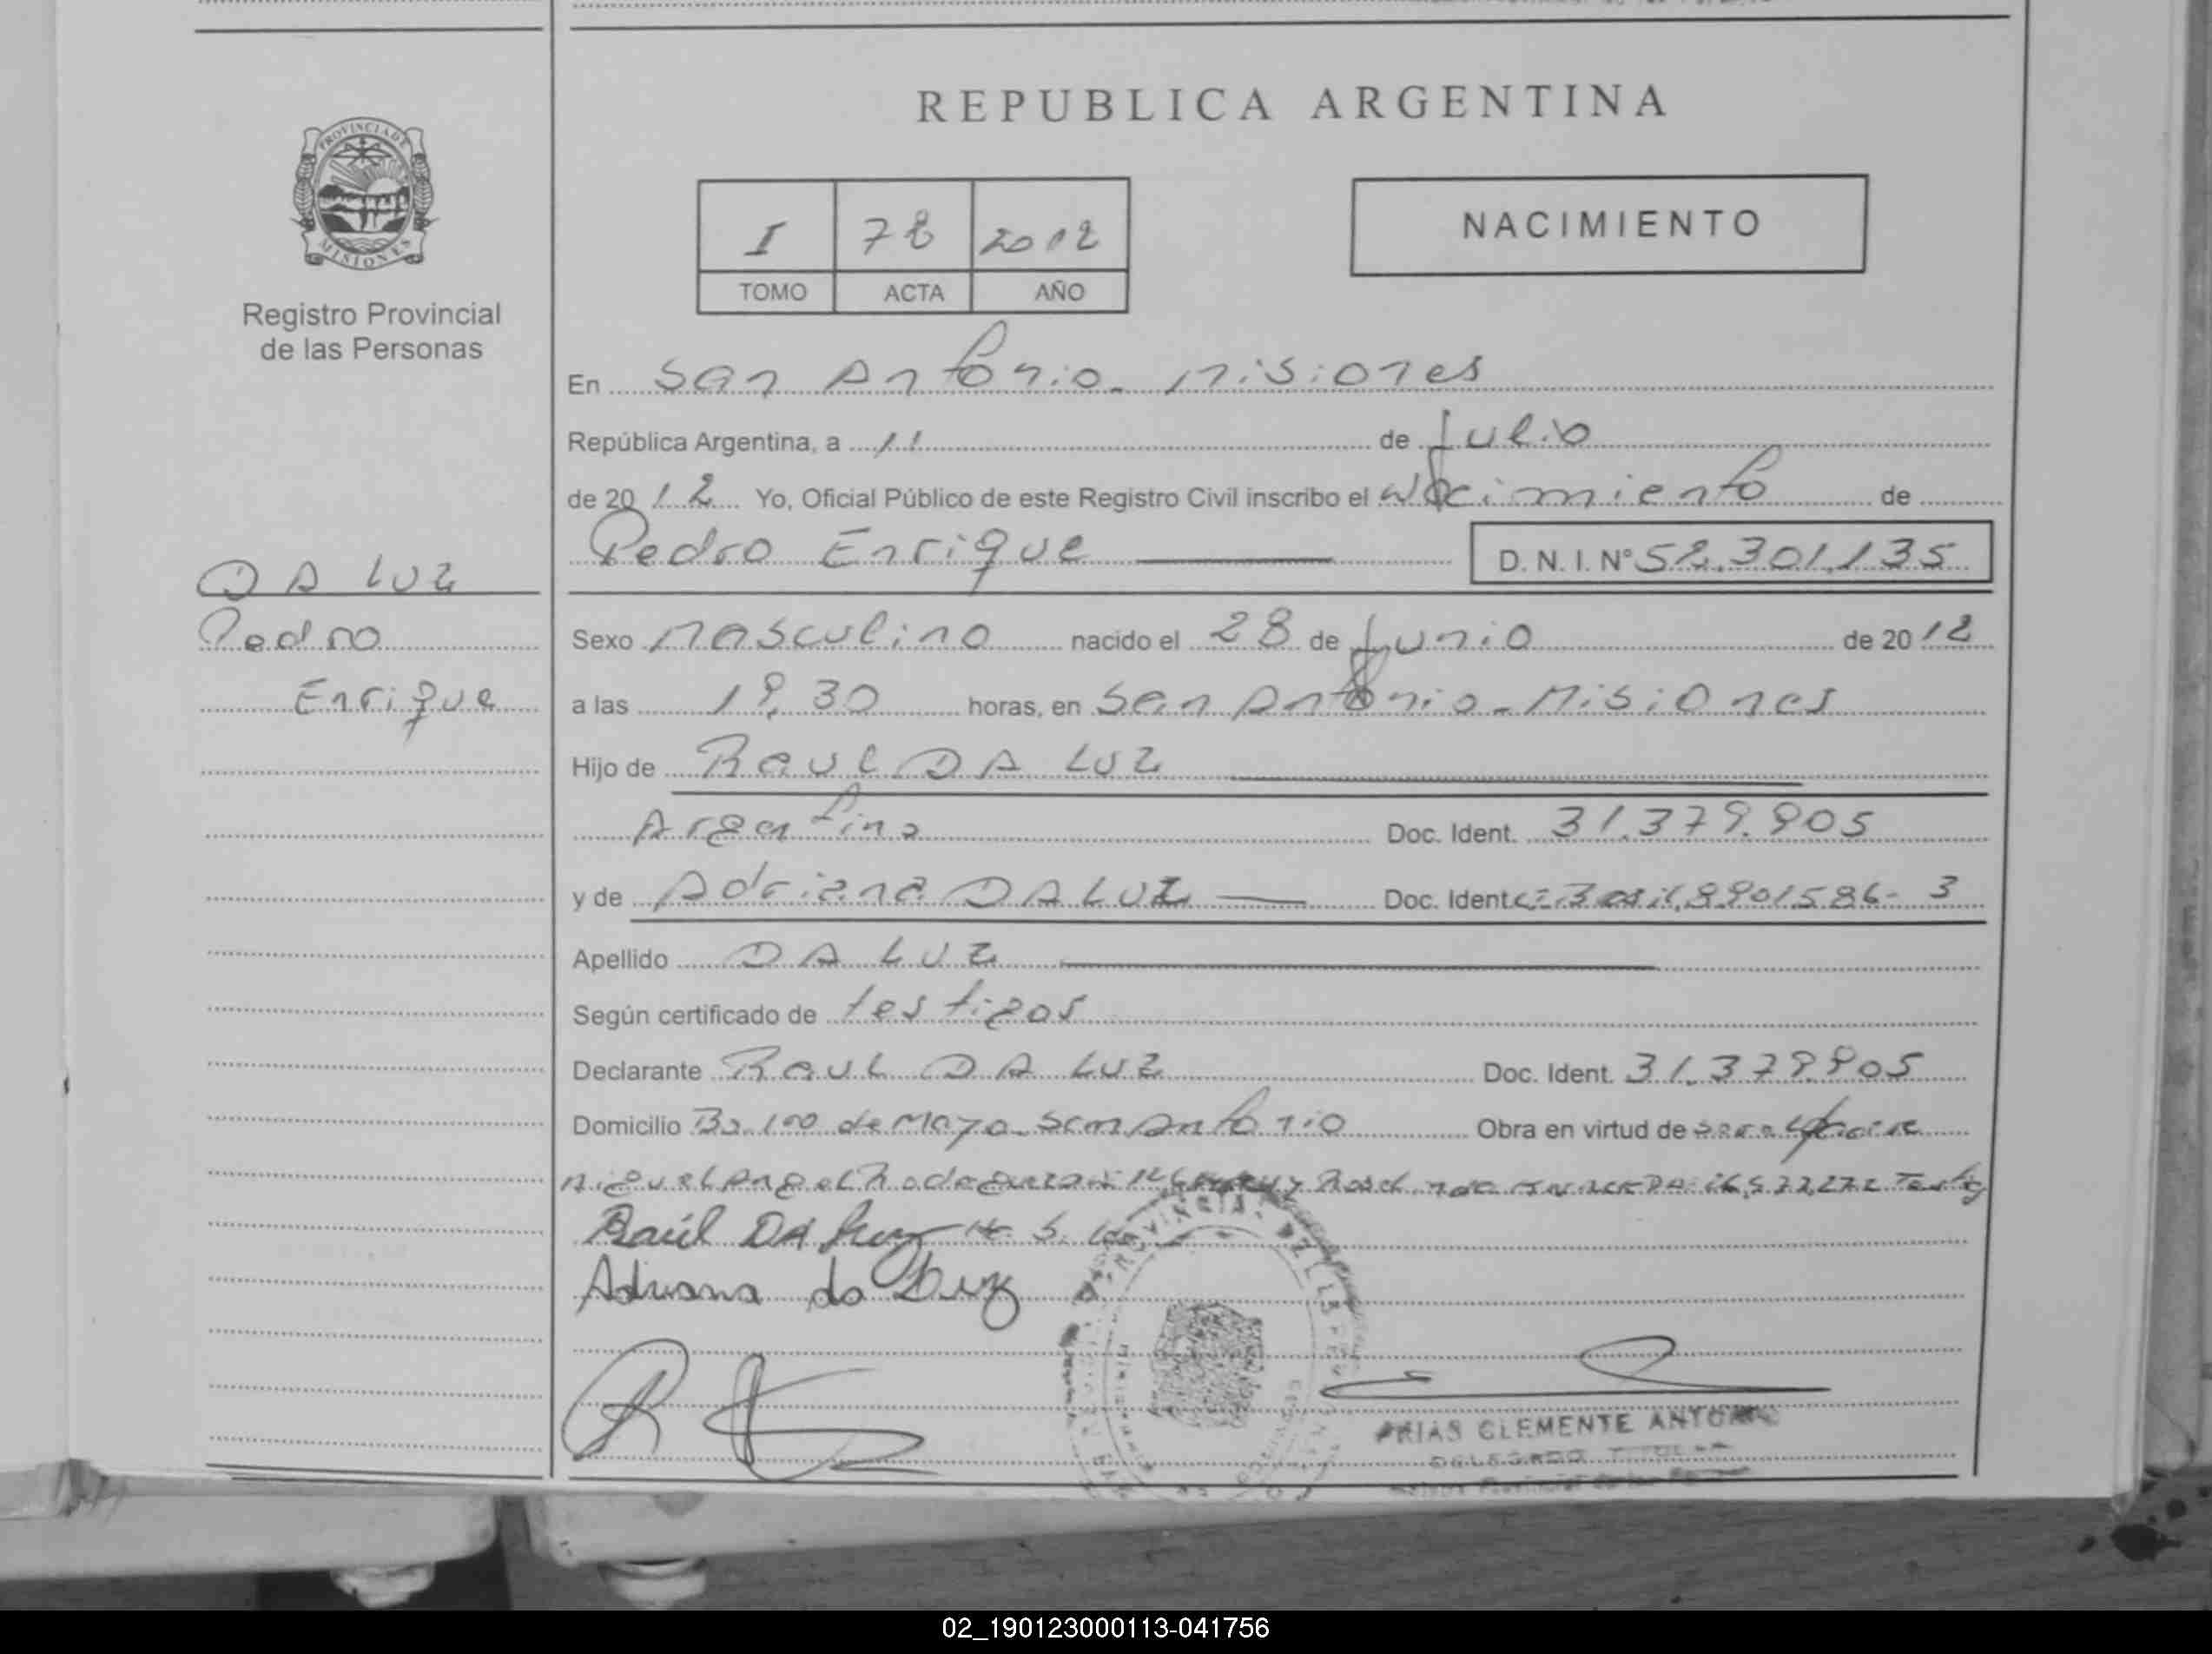 REPUBLICA ARGENTINA
PROVINCIA DE MISIONES
Registro Provincial
de las Personas
I 78 2012
TOMO ACTA AÑO
NACIMIENTO
En San Antonio - Misiones
República Argentina, a 11 de Julio
de 2012 Yo, Oficial Público de este Registro Civil inscribo el Nacimiento de
Pedro Enrique D. N. I. N° 52.301.135
DA LUZ
Pedro
Enrique
Sexo Masculino nacido el 28 de Junio de 2012
a las 19,30 horas, en San Antonio - Misiones
Hijo de Raul DA LUZ
Argentina Doc. Ident. 31.379.905
y de Adriana DA LUZ Doc. Ident. 8901586-3
Apellido DA LUZ
Según certificado de testigos
Declarante Raul DA LUZ Doc. Ident. 31.379.905
Domicilio B° 100 de Mayo San Antonio Obra en virtud de
Miguel Angel
Raúl DA Luz
Adriana da Luz
ARIAS CLEMENTE ANTONIO
DELEGADO TITULAR
02_190123000113-041756